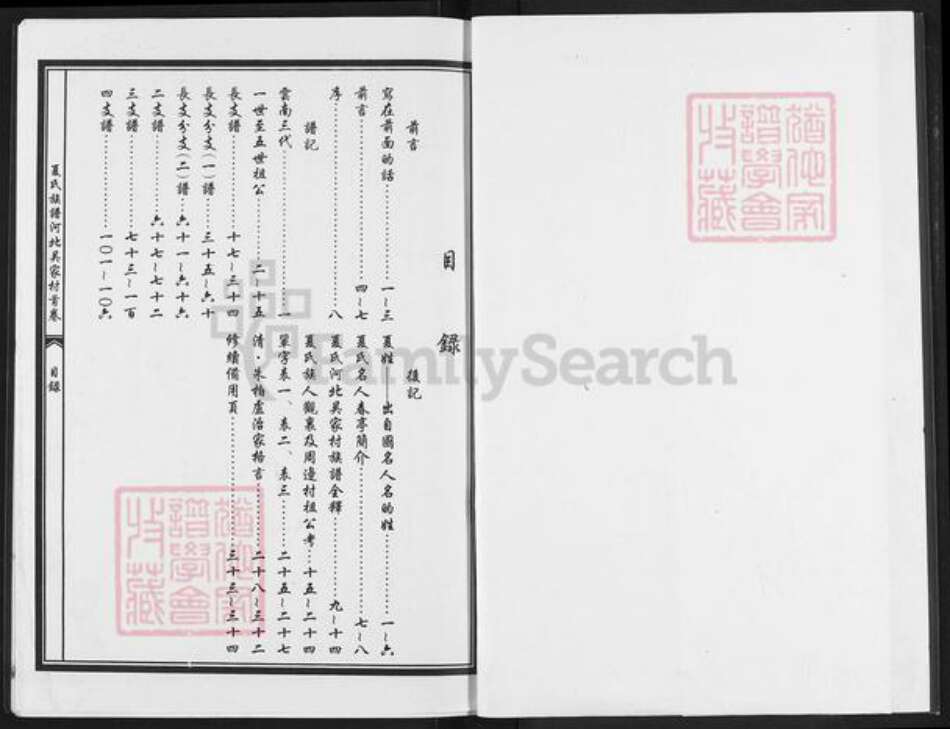 目錄
前言
寫在前面的話……一~三
前言……四~七
序……八
譜記
雲南三代……一
一世至五世祖公……二~十五
長支譜……十七~三十四
長支分支(一)譜……三十五~六十
長支分支(二)譜……六十一~六十六
二支譜……六十七~七十二
三支譜……七十三~一百
四支譜……一〇一~一〇六
後記
夏姓——出自國名人名的姓……一~六
夏氏名人春亭簡介……七~八
夏氏河北吳家村族譜全釋……九~十四
夏氏族人觀裏及周邊村祖公考……十五~二十四
單字表一、表二、表三……二十五~二十七
清·朱柏盧治家格言……二十八~三十二
修續備用頁……三十三~三十四
夏氏族譜河北吳家村首卷
目錄
猶他家譜學會收藏
猶他家譜學會收藏
FamilySearch